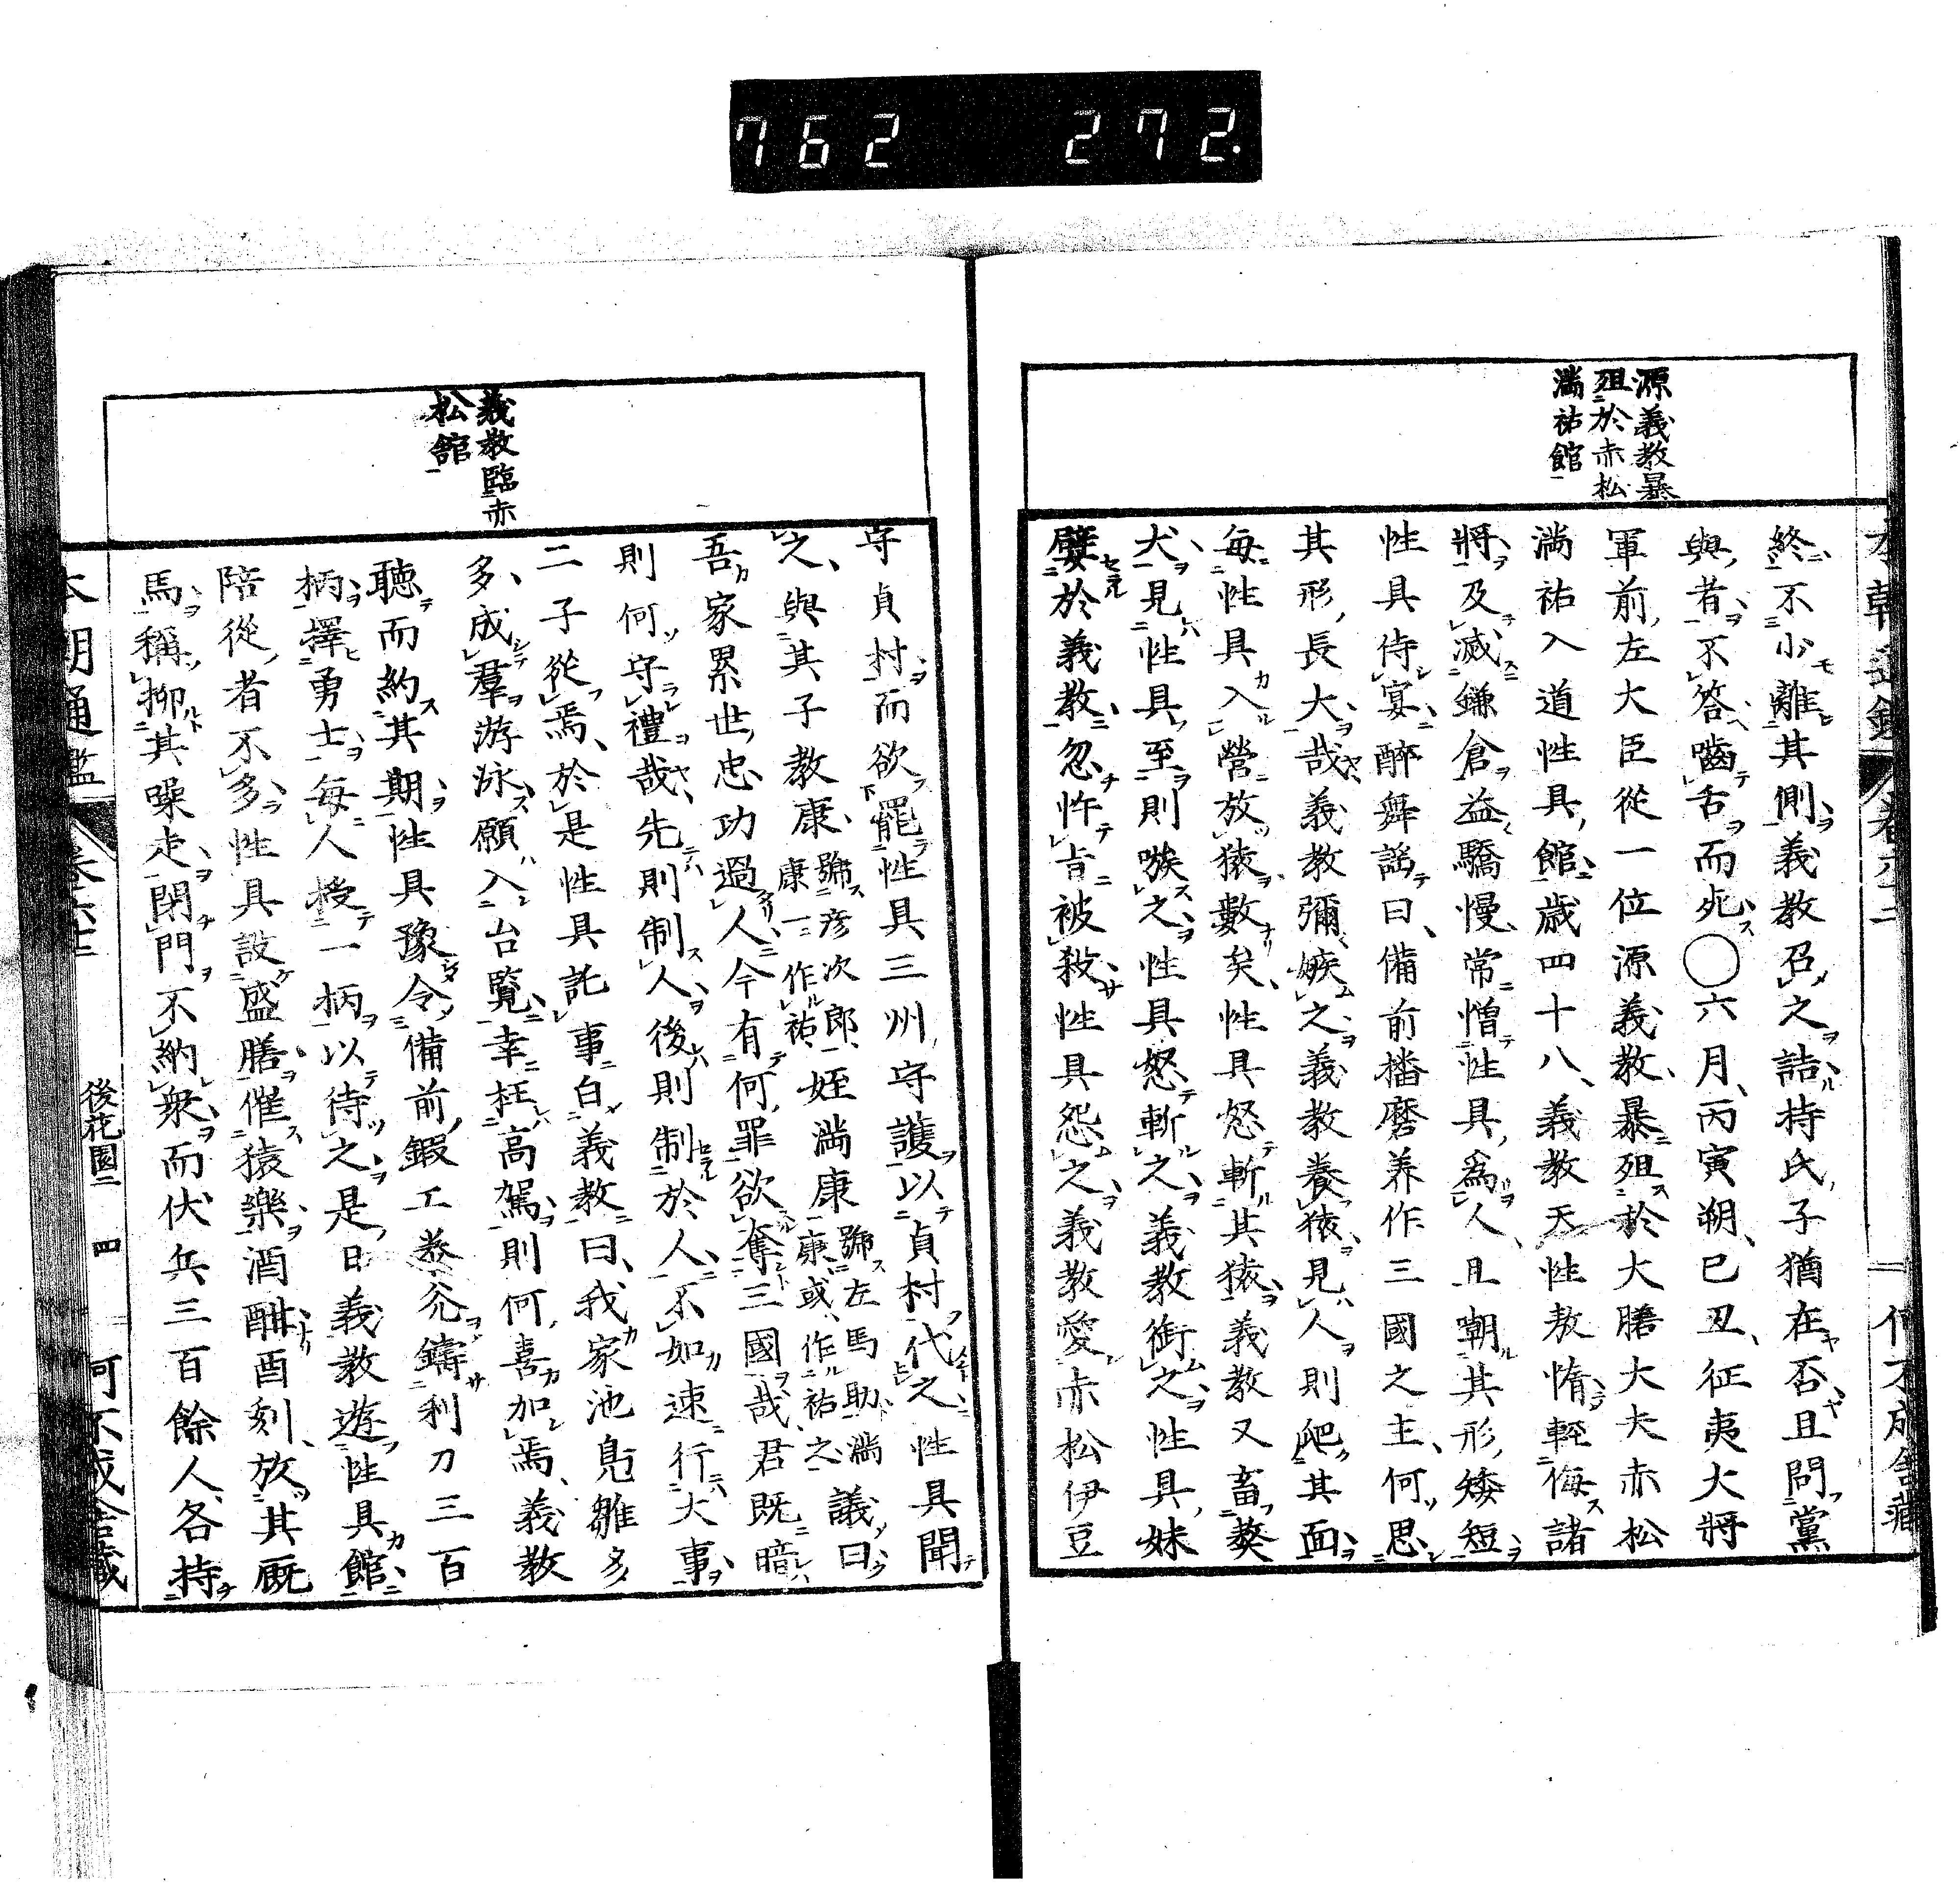 762 272.
源義教暴
殂於赤松
満祐館
終不少離其側義教召之詰持氏子猶在否且問黨
與者不答嚙舌而死〇六月丙寅朔己丑征夷大將
軍前左大臣從一位源義教暴殂於大膳大夫赤松
満祐入道性具館歳四十八義教天性敖惰輕侮諸
將及滅鎌倉益驕慢常憎性具爲人且嘲其形矮短
性具侍宴醉舞謡曰備前播磨养作三國之主何思
其形長大哉義教彌嫉之義教養猿見人則爬其面
每性具入營放猿數矣性具怒斬其猿義教又畜獒
犬見性具至則嗾之性具怒斬之義教銜之性具妹
嬖於義教忽忤旨被殺性具怨之義教愛赤松伊豆
義教臨赤
松館
守貞村而欲罷性具三州守護以貞村代之性具聞
之與其子教康號彦次郎康一作祐姪満康號左馬助満康或作祐之議曰
吾家累世忠功過人今有何罪欲奪三國哉君既暗
則何守禮哉先則制人後則制於人不如速行大事
二子從焉於是性具託事白義教曰我家池鳧雛多
多成羣游泳願入台覧幸枉高駕則何喜加焉義教
聽而約其期性具豫令備前鍛工泰光鑄利刀三百
柄擇勇士每人授一柄以待之是日義教遊性具館
陪從者不多性具設盛膳催猿樂酒酣酉刻放其厩
馬稱抑其噪走閉門不納衆而伏兵三百餘人各持
本朝通鑑 卷六十二 後花園二 四